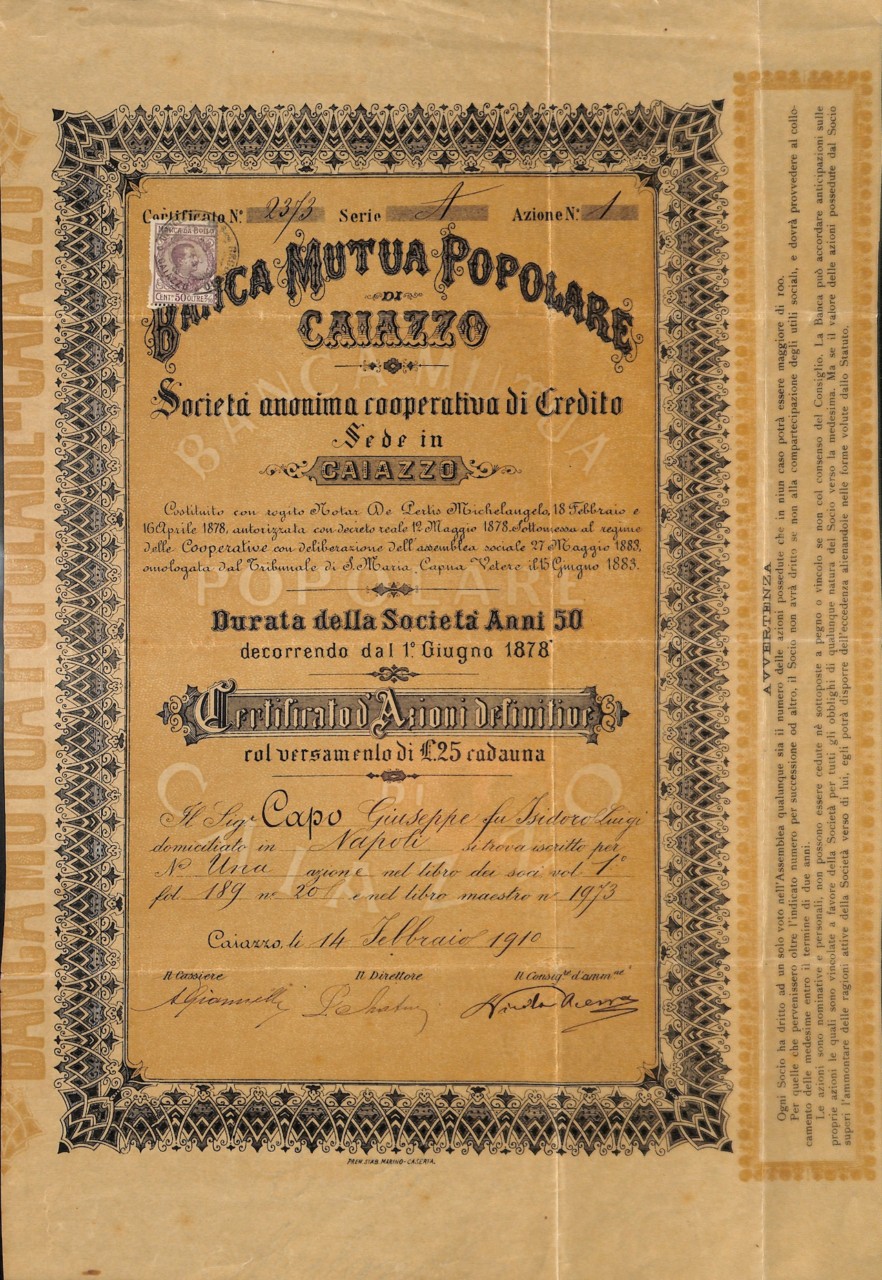 Certificato N.º 2373 Serie A Azione N.º 1
MARCA DA BOLLO
CENT.MI 50 OLTRE
BANCA MUTUA POPOLARE
DI
CAIAZZO
Società anonima cooperativa di Credito
Sede in
CAIAZZO
Costituito con rogito Notar De Pertis Michelangelo, 18 Febbraio e
16 Aprile 1878, autorizzata con decreto reale 12 Maggio 1878. Sottomessa al regime
delle Cooperative con deliberazione dell'assemblea sociale 27 Maggio 1883,
omologata dal Tribunale di S. Maria Capua Vetere il 15 Giugno 1883.
Durata della Società Anni 50
decorrendo dal 1º Giugno 1878
Certificato d'Azioni definitive
col versamento di £.25 cadauna
Il Sig.r Capo Giuseppe fu Isidoro Luigi
domiciliato in Napoli si trova iscritto per
Nº Una azione nel libro dei soci vol. 1º
fol. 189 nº 20 e nel libro maestro nº 1973
Caiazzo, li 14 Febbraio 1910
Il Cassiere Il Direttore Il Consig.re d'amm.ne
A Giannelli
PREM. STAB. MARINO-CASERTA.
BANCA MUTUA POPOLARE
DI
CAIAZZO
BANCA MUTUA POPOLARE-CAIAZZO
AVVERTENZA
Ogni Socio ha dritto ad un solo voto nell'Assemblea qualunque sia il numero delle azioni possedute che in niun caso potrà essere maggiore di 100.
Per quelle che pervenissero oltre l'indicato numero per successione od altro, il Socio non avrà dritto se non alla compartecipazione degli utili sociali, e dovrà provvedere al collo-
camento delle medesime entro il termine di due anni.
Le azioni sono nominative e personali, non possono essere cedute nè sottoposte a pegno o vincolo se non col consenso del Consiglio. La Banca può accordare anticipazioni sulle
proprie azioni le quali sono vincolate a favore della Società per tutti gli obblighi di qualunque natura del Socio verso la medesima. Ma se il valore delle azioni possedute dal Socio
superi l'ammontare delle ragioni attive della Società verso di lui, egli potrà disporre dell'eccedenza alienandole nelle forme volute dallo Statuto.